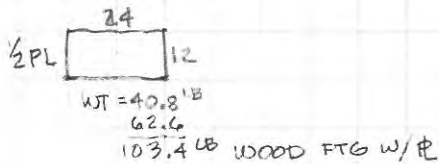 24
½ PL 12
WT = 40.8 LB
62.6
103.4 LB WOOD FTG W/ ⅊